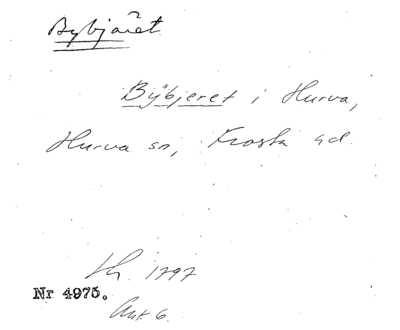 Bybjäret
Bÿbjeret i Hurva,
Hurva sn, Frosta hd.
Lh. 1797
Nr 4975.
Ant. 6.